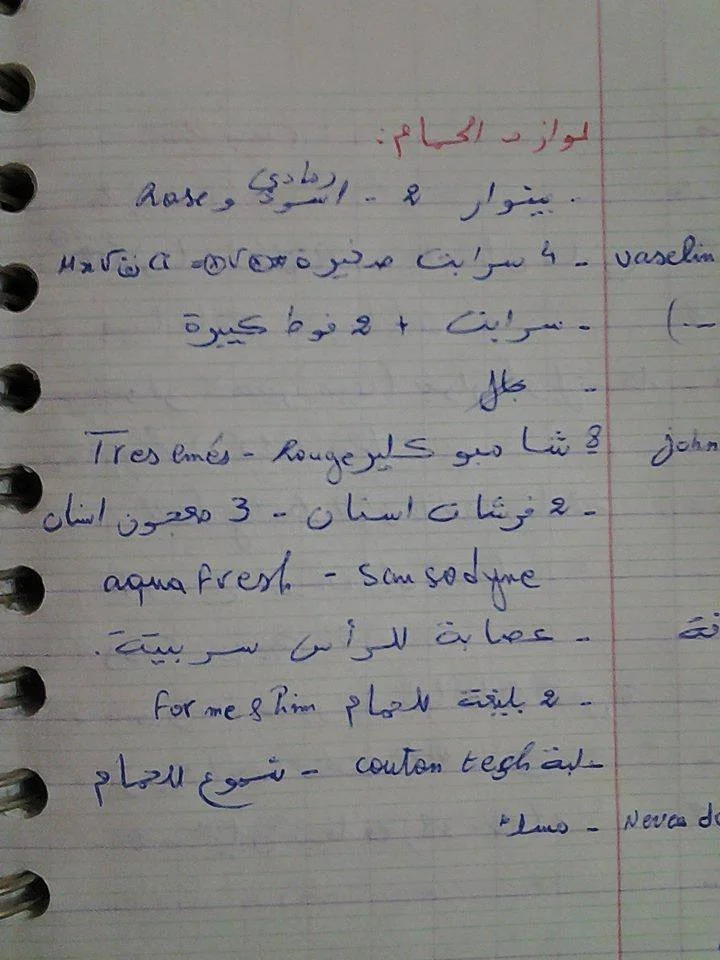 لوازم الحمام:
. بينوار 2 - اسود رمادي و Rose
- 4 سرابت صغيرة
vaselin
- سرابت + 2 فوط كبيرة
(--
-
8 شامبو كلير Rouge - Tresemés
john
- 2 فرشات اسنان - 3 معجون اسنان
aquafresh - Sensodyne
- عصابة للرأس سربيتة.
- 2 بليغة للحمام for me & him
علبة couton tegh - شموع للحمام
-
Nevea do